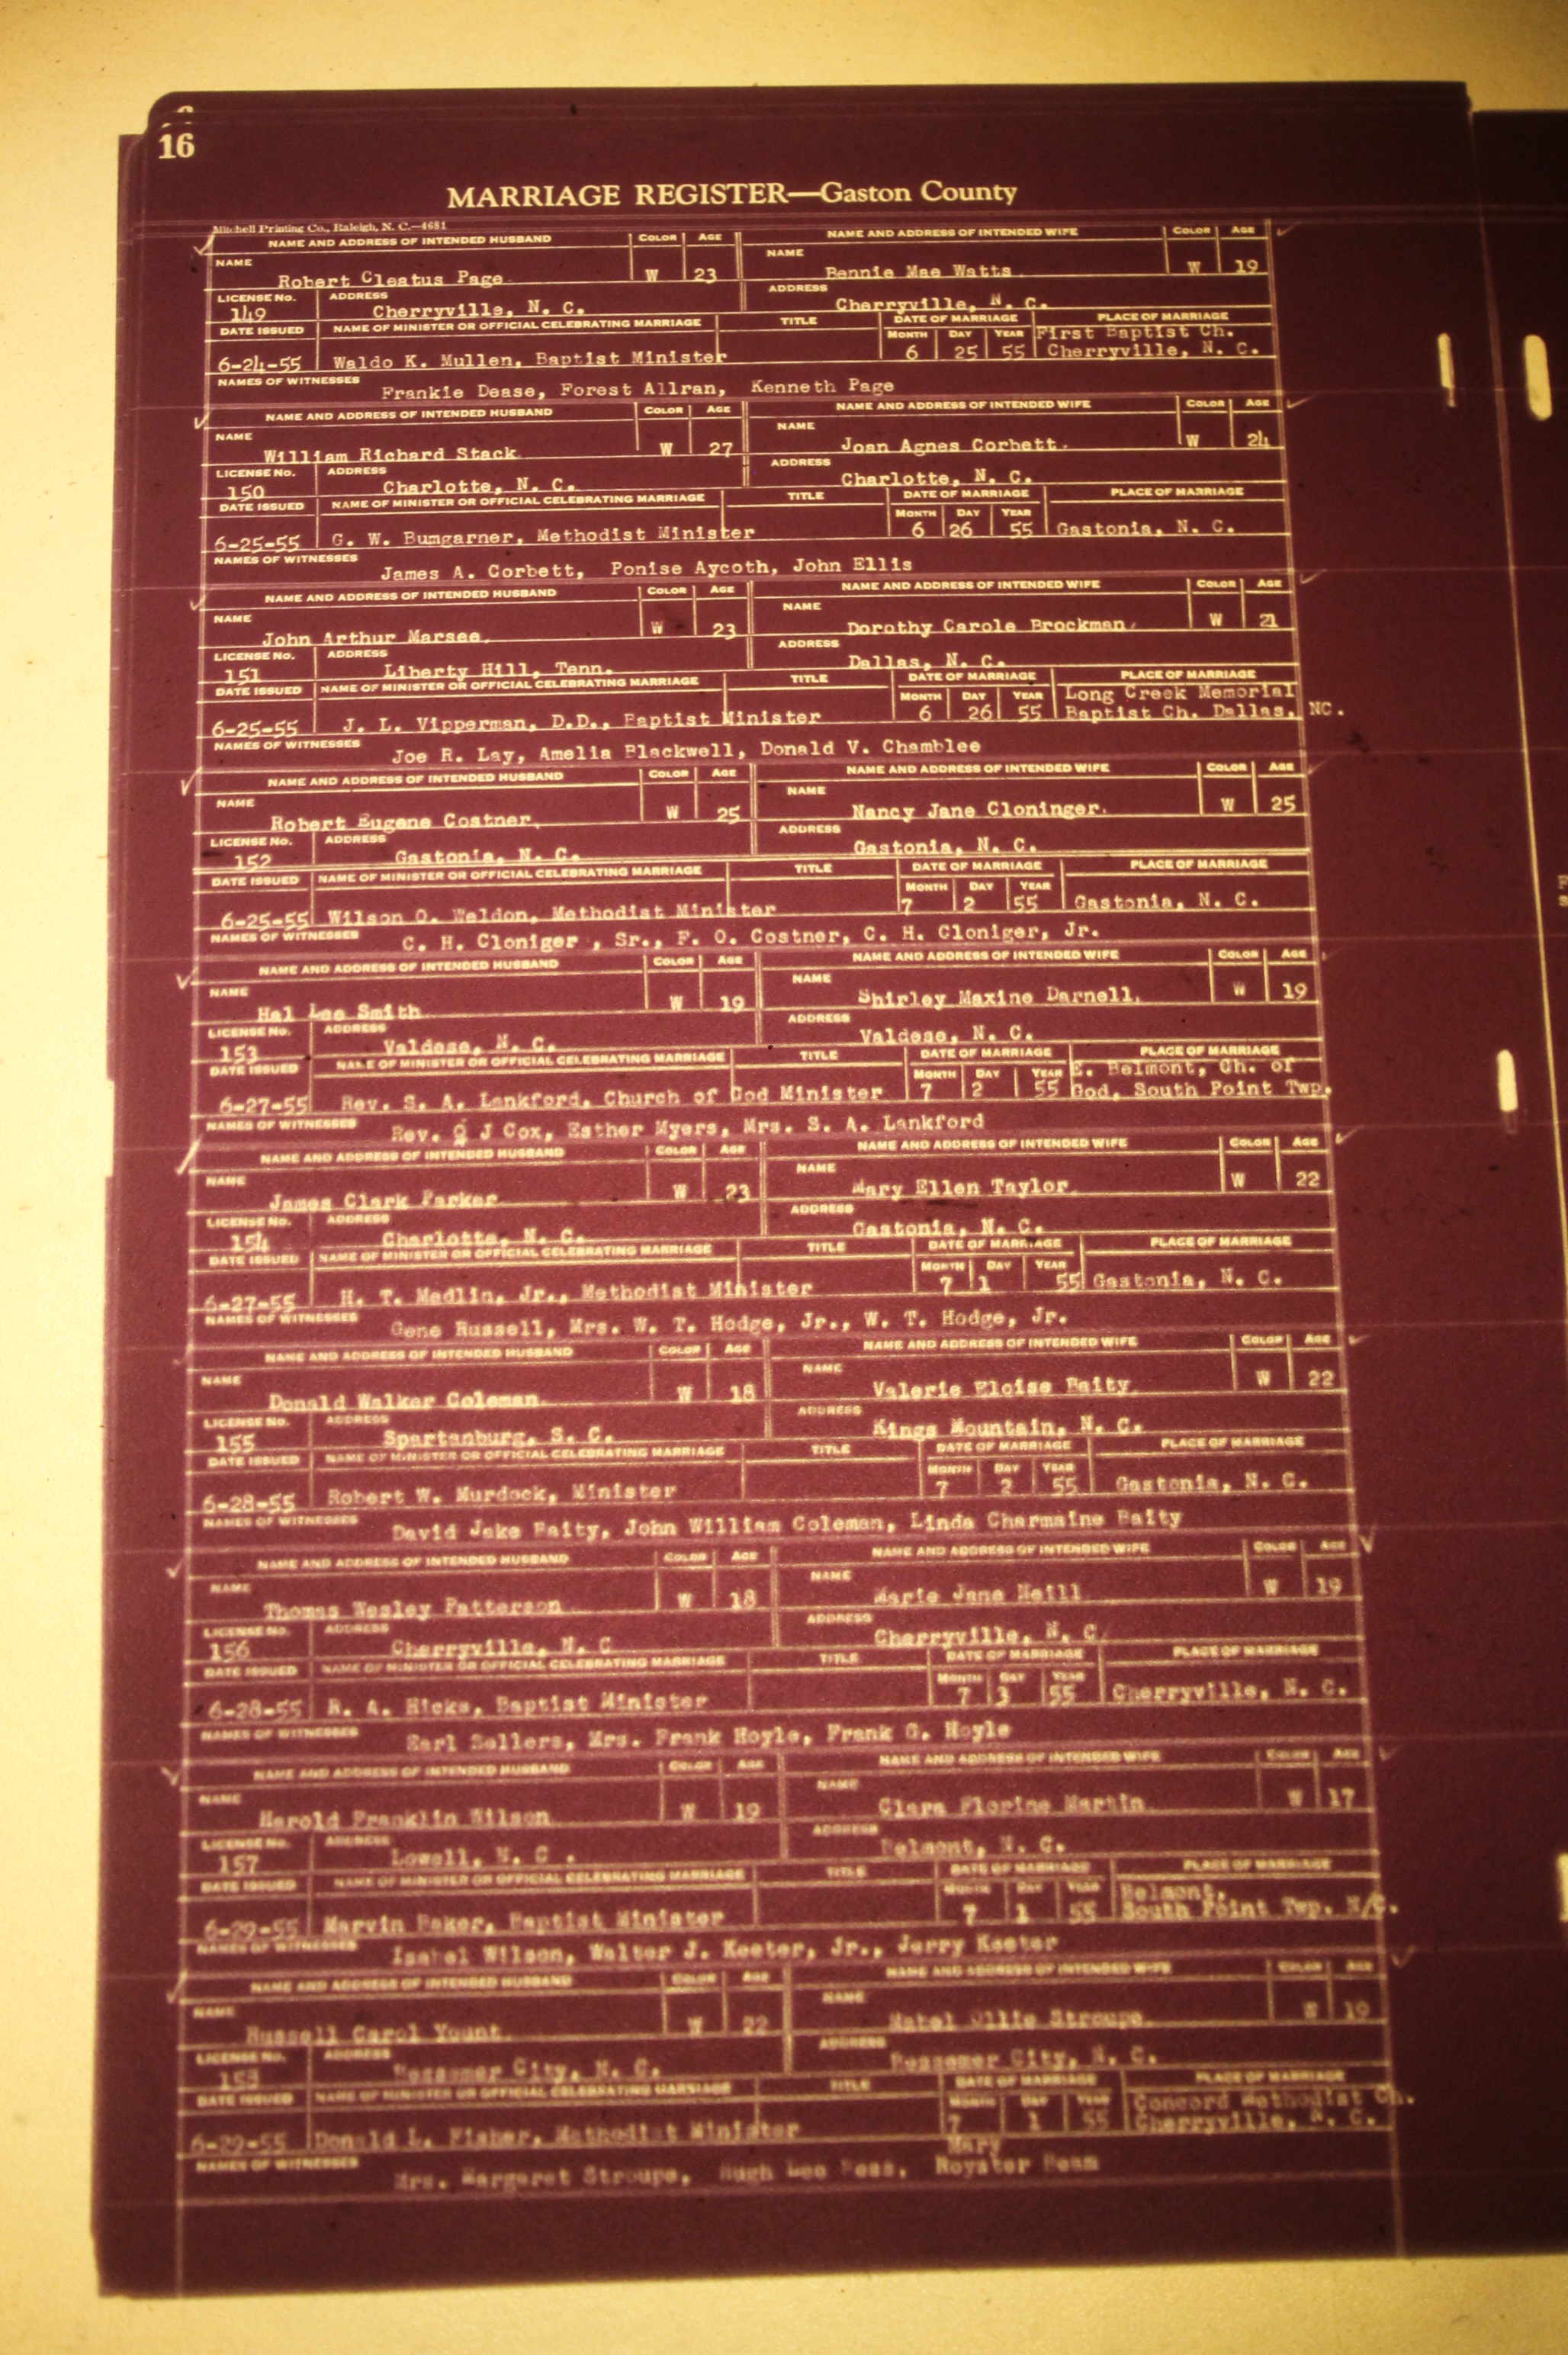 16
MARRIAGE REGISTER—Gaston County
Mitchell Printing Co., Raleigh, N. C.—4681
NAME AND ADDRESS OF INTENDED HUSBAND COLOR AGE NAME AND ADDRESS OF INTENDED WIFE COLOR AGE
NAME Robert Cleatus Page W 23 NAME Bennie Mae Watts W 19
LICENSE No. 149 ADDRESS Cherryville, N. C. ADDRESS Cherryville, N. C.
DATE ISSUED NAME OF MINISTER OR OFFICIAL CELEBRATING MARRIAGE TITLE DATE OF MARRIAGE PLACE OF MARRIAGE
MONTH DAY YEAR First Baptist Ch.
6-24-55 Waldo K. Mullen, Baptist Minister 6 25 55 Cherryville, N. C.
NAMES OF WITNESSES Frankie Dease, Forest Allran, Kenneth Page
NAME AND ADDRESS OF INTENDED HUSBAND COLOR AGE NAME AND ADDRESS OF INTENDED WIFE COLOR AGE
NAME William Richard Stack W 27 NAME Joan Agnes Corbett. W 24
LICENSE No. 150 ADDRESS Charlotte, N. C. ADDRESS Charlotte, N. C.
DATE ISSUED NAME OF MINISTER OR OFFICIAL CELEBRATING MARRIAGE TITLE DATE OF MARRIAGE PLACE OF MARRIAGE
MONTH DAY YEAR
6-25-55 G. W. Bumgarner, Methodist Minister 6 26 55 Gastonia, N. C.
NAMES OF WITNESSES James A. Corbett, Ponise Aycoth, John Ellis
NAME AND ADDRESS OF INTENDED HUSBAND COLOR AGE NAME AND ADDRESS OF INTENDED WIFE COLOR AGE
NAME John Arthur Marsee. W 23 NAME Dorothy Carole Brockman. W 21
LICENSE No. 151 ADDRESS Liberty Hill, Tenn. ADDRESS Dallas, N. C.
DATE ISSUED NAME OF MINISTER OR OFFICIAL CELEBRATING MARRIAGE TITLE DATE OF MARRIAGE PLACE OF MARRIAGE
MONTH DAY YEAR Long Creek Memorial
6-25-55 J. L. Vipperman, D.D., Baptist Minister 6 26 55 Baptist Ch. Dallas, NC.
NAMES OF WITNESSES Joe R. Lay, Amelia Blackwell, Donald V. Chamblee
NAME AND ADDRESS OF INTENDED HUSBAND COLOR AGE NAME AND ADDRESS OF INTENDED WIFE COLOR AGE
NAME Robert Eugene Costner. W 25 NAME Nancy Jane Cloninger. W 25
LICENSE No. 152 ADDRESS Gastonia, N. C. ADDRESS Gastonia, N. C.
DATE ISSUED NAME OF MINISTER OR OFFICIAL CELEBRATING MARRIAGE TITLE DATE OF MARRIAGE PLACE OF MARRIAGE
MONTH DAY YEAR
6-25-55 Wilson O. Weldon, Methodist Minister 7 2 55 Gastonia, N. C.
NAMES OF WITNESSES C. H. Cloniger , Sr., F. O. Costner, C. H. Cloniger, Jr.
NAME AND ADDRESS OF INTENDED HUSBAND COLOR AGE NAME AND ADDRESS OF INTENDED WIFE COLOR AGE
NAME Hal Lee Smith W 19 NAME Shirley Maxine Darnell. W 19
LICENSE No. 153 ADDRESS Valdese, N. C. ADDRESS Valdese, N. C.
DATE ISSUED NAME OF MINISTER OR OFFICIAL CELEBRATING MARRIAGE TITLE DATE OF MARRIAGE PLACE OF MARRIAGE
MONTH DAY YEAR E. Belmont, Ch. of
6-27-55 Rev. S. A. Lankford, Church of God Minister 7 2 55 God, South Point Twp.
NAMES OF WITNESSES Rev. J Cox, Esther Myers, Mrs. S. A. Lankford
NAME AND ADDRESS OF INTENDED HUSBAND COLOR AGE NAME AND ADDRESS OF INTENDED WIFE COLOR AGE
NAME James Clark Parker W 23 NAME Mary Ellen Taylor. W 22
LICENSE No. 154 ADDRESS Charlotte, N. C. ADDRESS Gastonia, N. C.
DATE ISSUED NAME OF MINISTER OR OFFICIAL CELEBRATING MARRIAGE TITLE DATE OF MARRIAGE PLACE OF MARRIAGE
MONTH DAY YEAR
6-27-55 H. T. Medlin, Jr., Methodist Minister 7 1 55 Gastonia, N. C.
NAMES OF WITNESSES Gene Russell, Mrs. W. T. Hodge, Jr., W. T. Hodge, Jr.
NAME AND ADDRESS OF INTENDED HUSBAND COLOR AGE NAME AND ADDRESS OF INTENDED WIFE COLOR AGE
NAME Donald Walker Coleman. W 18 NAME Valerie Eloise Baity. W 22
LICENSE No. 155 ADDRESS Spartanburg, S. C. ADDRESS Kings Mountain, N. C.
DATE ISSUED NAME OF MINISTER OR OFFICIAL CELEBRATING MARRIAGE TITLE DATE OF MARRIAGE PLACE OF MARRIAGE
MONTH DAY YEAR
6-28-55 Robert W. Murdock, Minister 7 2 55 Gastonia, N. C.
NAMES OF WITNESSES David Jake Baity, John William Coleman, Linda Charmaine Baity
NAME AND ADDRESS OF INTENDED HUSBAND COLOR AGE NAME AND ADDRESS OF INTENDED WIFE COLOR AGE
NAME Thomas Wesley Patterson W 18 NAME Marie Jane Neill W 19
LICENSE No. 156 ADDRESS Cherryville, N. C ADDRESS Cherryville, N. C
DATE ISSUED NAME OF MINISTER OR OFFICIAL CELEBRATING MARRIAGE TITLE DATE OF MARRIAGE PLACE OF MARRIAGE
MONTH DAY YEAR
6-28-55 R. A. Hicks, Baptist Minister 7 3 55 Cherryville, N. C.
NAMES OF WITNESSES Earl Sellers, Mrs. Frank Hoyle, Frank G. Hoyle
NAME AND ADDRESS OF INTENDED HUSBAND COLOR AGE NAME AND ADDRESS OF INTENDED WIFE COLOR AGE
NAME Harold Franklin Wilson W 19 NAME Clara Florine Martin W 17
LICENSE No. 157 ADDRESS Lowell, N. C . ADDRESS Belmont, N. C.
DATE ISSUED NAME OF MINISTER OR OFFICIAL CELEBRATING MARRIAGE TITLE DATE OF MARRIAGE PLACE OF MARRIAGE
MONTH DAY YEAR Belmont,
6-29-55 Marvin Baker, Baptist Minister 7 1 55 South Point Twp. N/C.
NAMES OF WITNESSES Isabel Wilson, Walter J. Keeter, Jr., Jerry Keeter
NAME AND ADDRESS OF INTENDED HUSBAND COLOR AGE NAME AND ADDRESS OF INTENDED WIFE COLOR AGE
NAME Russell Carol Yount. W 22 NAME Mabel Ollie Stroupe. W 19
LICENSE No. 158 ADDRESS Bessemer City, N. C. ADDRESS Bessemer City, N. C.
DATE ISSUED NAME OF MINISTER OR OFFICIAL CELEBRATING MARRIAGE TITLE DATE OF MARRIAGE PLACE OF MARRIAGE
MONTH DAY YEAR Concord Methodist Ch.
6-29-55 Donald L. Fisher, Methodist Minister 7 1 55 Cherryville, N. C.
Mary
NAMES OF WITNESSES Mrs. Margaret Stroupe, Hugh Lee Royster Beam